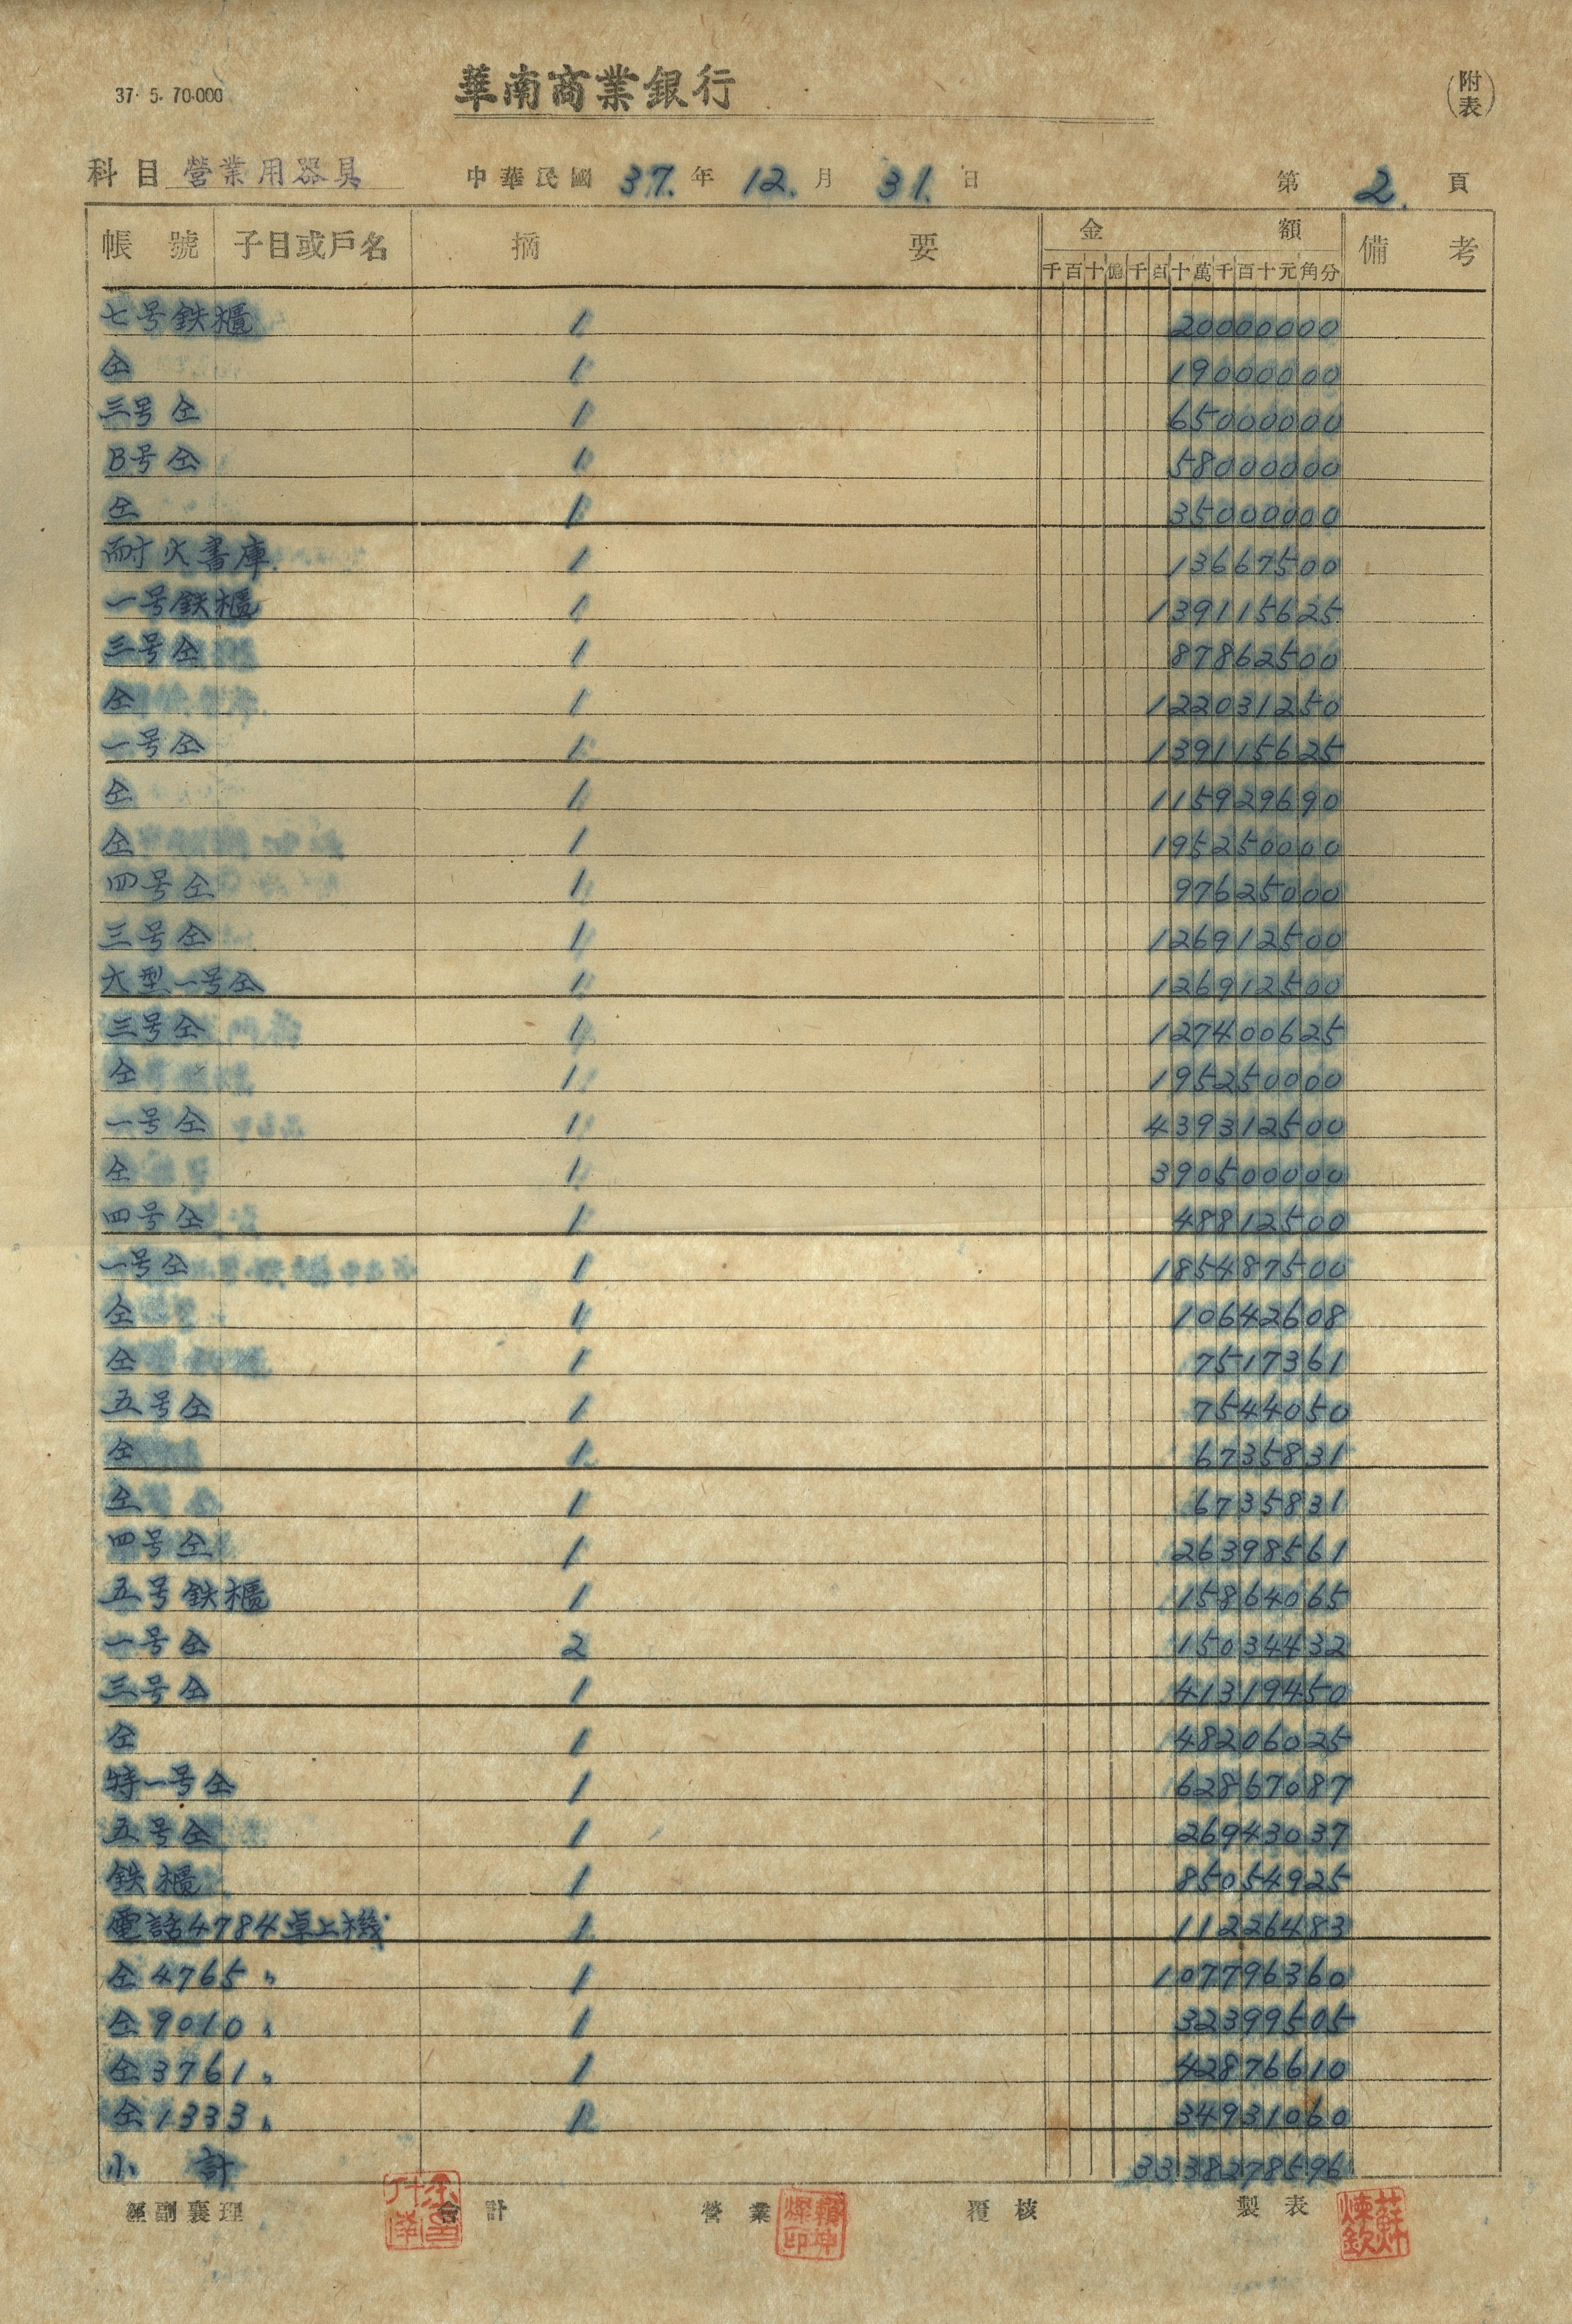 37. 5. 70.000
華南商業銀行
(附表)
科目 營業用器具 中華民國 37. 年 12. 月 31. 日 第 2. 頁
帳號 子目或戶名 摘要 金額 備考
千百十億千百十萬千百十元角分
七号鉄櫃 1 20000000
仝 1 19000000
三号仝 1 65000000
B号仝 1 58000000
仝 1 35000000
耐火書庫. 1 13667500
一号鉄櫃 1 139115625
三号仝 1 87862500
仝 1 122031250
一号仝 1 139115625
仝 1 115929690
仝 1 195250000
四号仝 1 97625000
三号仝 1 126912500
大型一号仝 1 126912500
三号仝 1 127400625
仝 1 195250000
一号仝 1 439312500
仝 1 390500000
四号仝 1 48812500
一号仝 1 185487500
仝 1 10642608
仝 1 7517361
五号仝 1 7544050
仝 1 6735831
仝 1 6735831
四号仝 1 26398561
五号鉄櫃 1 15864065
一号仝 2 15034432
三号仝 1 41319450
仝 1 48206025
特一号仝 1 62867087
五号仝 1 26943037
鉄櫃 1 85054925
電話4784卓上機 1 11226483
仝4765〃 1 107796360
仝9010〃 1 32399505
仝3761〃 1 42876610
仝1333〃 1 34931060
小計 3338278596
經副襄理 會計 營業 覆核 製表
蘇煉欽